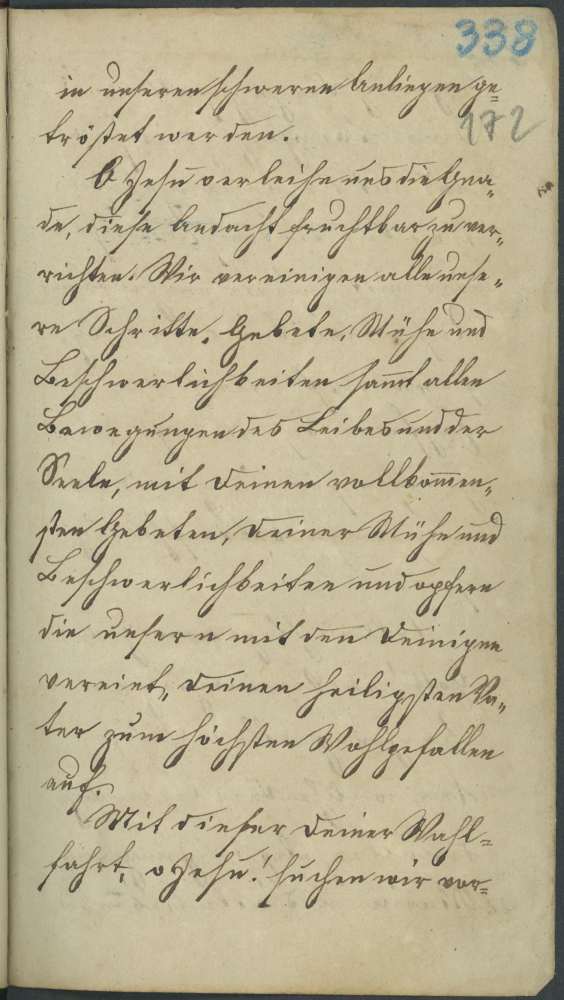 338
in unseren schweren Anliegen ge=
172
tröstet werden.
O Jesu verleihe uns die Gna„
de, diese Andacht fruchtbar zu ver„
richten. Wir vereinigen alle unse„
re Schritte, Gebete, Mühe und
Beschwerlichkeiten sam̅t allen
Bewegungen des Leibes und der
Seele, mit deinen vollkom̅en„
sten Gebeten, deiner Mühe und
Beschwerlichkeiten und opfern
die unsern mit den Deinigen
vereint, deinen heiligsten Va„
ter zum höchsten Wohlgefallen
auf.
Mit dieser deiner Wahl=
fahrt, o Jesu! suchen wir vor=